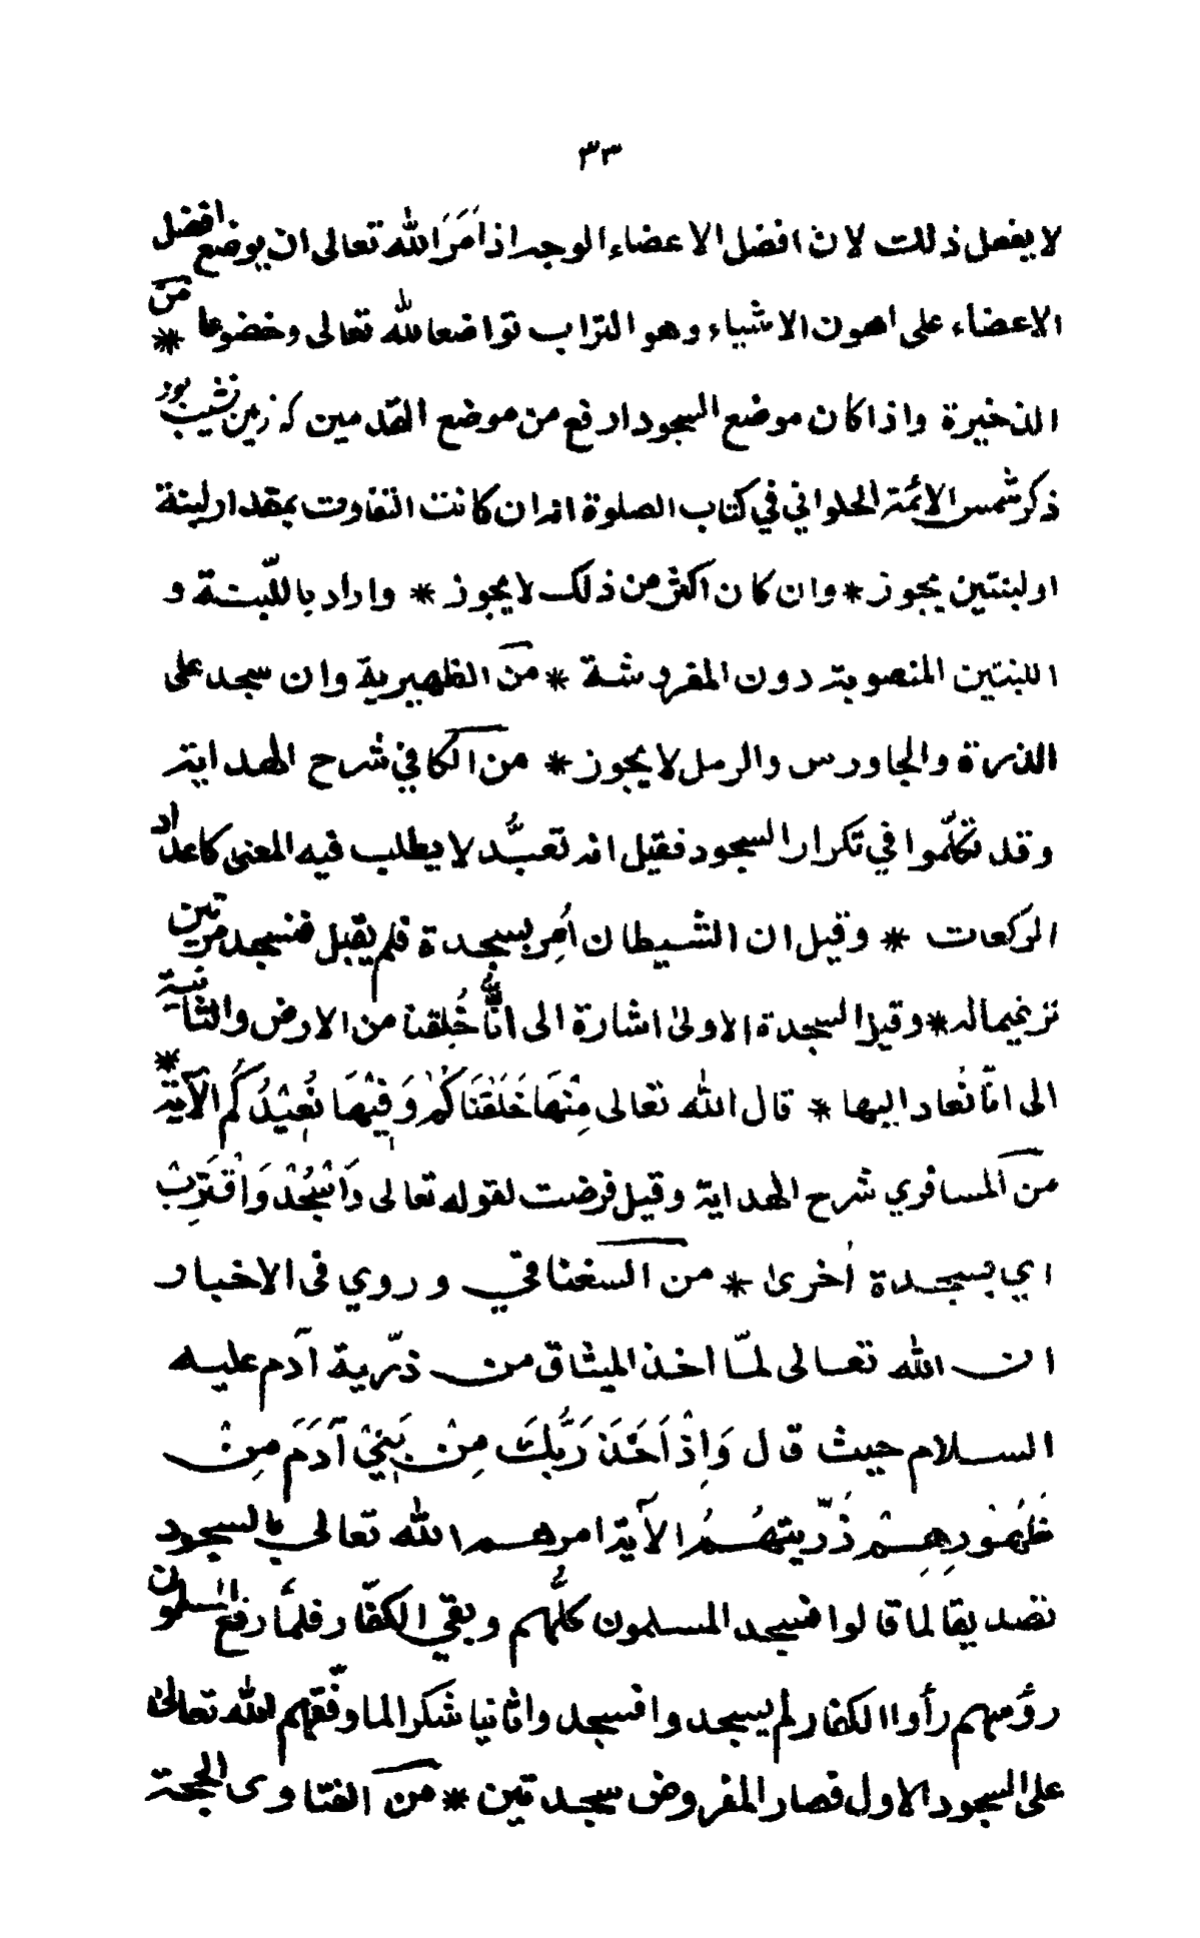 ٣٣
لا يفعل ذلك لان افضل الاعضاء الوجه اذ اَمَرَ الله تعالى ان يوضع افضل
الاعضاء على اهون الاشياء وهو التراب تواضعا لله تعالى وخضوعا * من
الذخيرة واذا كان موضع السجود ارفع من موضع القدمين كه زمين نشيب بود
ذكر شمس الائمة الحلواني في كتاب الصلوة انه ان كانت التفاوت بمقدار لبنة
او لبنتين يجوز * وان كان اكثر من ذلك لا يجوز * واراد باللّبنة و
اللبنتين المنصوبة دون المفروشة * من الظهيرية وان سجد على
الذرة والجاورس والرمل لا يجوز * من الكافي شرح الهداية
وقد تكلّموا في تكرار السجود فقيل انه تعبُّد لا يطلب فيه المعنى كاعداد
الركعات * وقيل ان الشيطان اُمِر بسجدة فلم يقبل فنسجد مرتين
ترغيما له * وقيل السجدة الاولىٰ اشارة الى انّا خُلِقنا من الارض والثانية
الى انّا نُعاد اليها * قال الله تعالى مِنْهَا خَلَقْنَاكُمْ وَفِيْهَا نُعِيْدُكُم الآية *
من المسافري شرح الهداية وقيل فرضت لقوله تعالى وَاسْجُدْ وَاقْتَرِبْ
اي بسجدة اُخرىٰ * من السغناقي وروي فى الاخبار
ان الله تعالى لمّا اخذ الميثاق من ذرّية آدم عليه
السلام حيث قال وَاِذْ اَخَذَ رَبُّكَ مِنْ بَنِيْ آدَمَ مِنْ
ظُهُوْرِهِمْ ذُرِّيتهُمُ الآية امرهم الله تعالى بالسجود
تصديقا لما قالوا فسجد المسلمون كلُّهم وبقي الكفّار فلمّا رفع المسلمون
رؤسهم رأوا الكفار لم يسجدوا فسجدوا ثانيا شكرا لما وفّقهم الله تعالىٰ
على السجود الاول فصار المفروض سجدتين * من الفتاوى الحجة